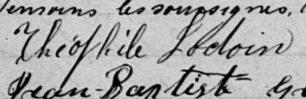 Témoins les soussignés,
Théophile Lodoin
Jean-Baptiste